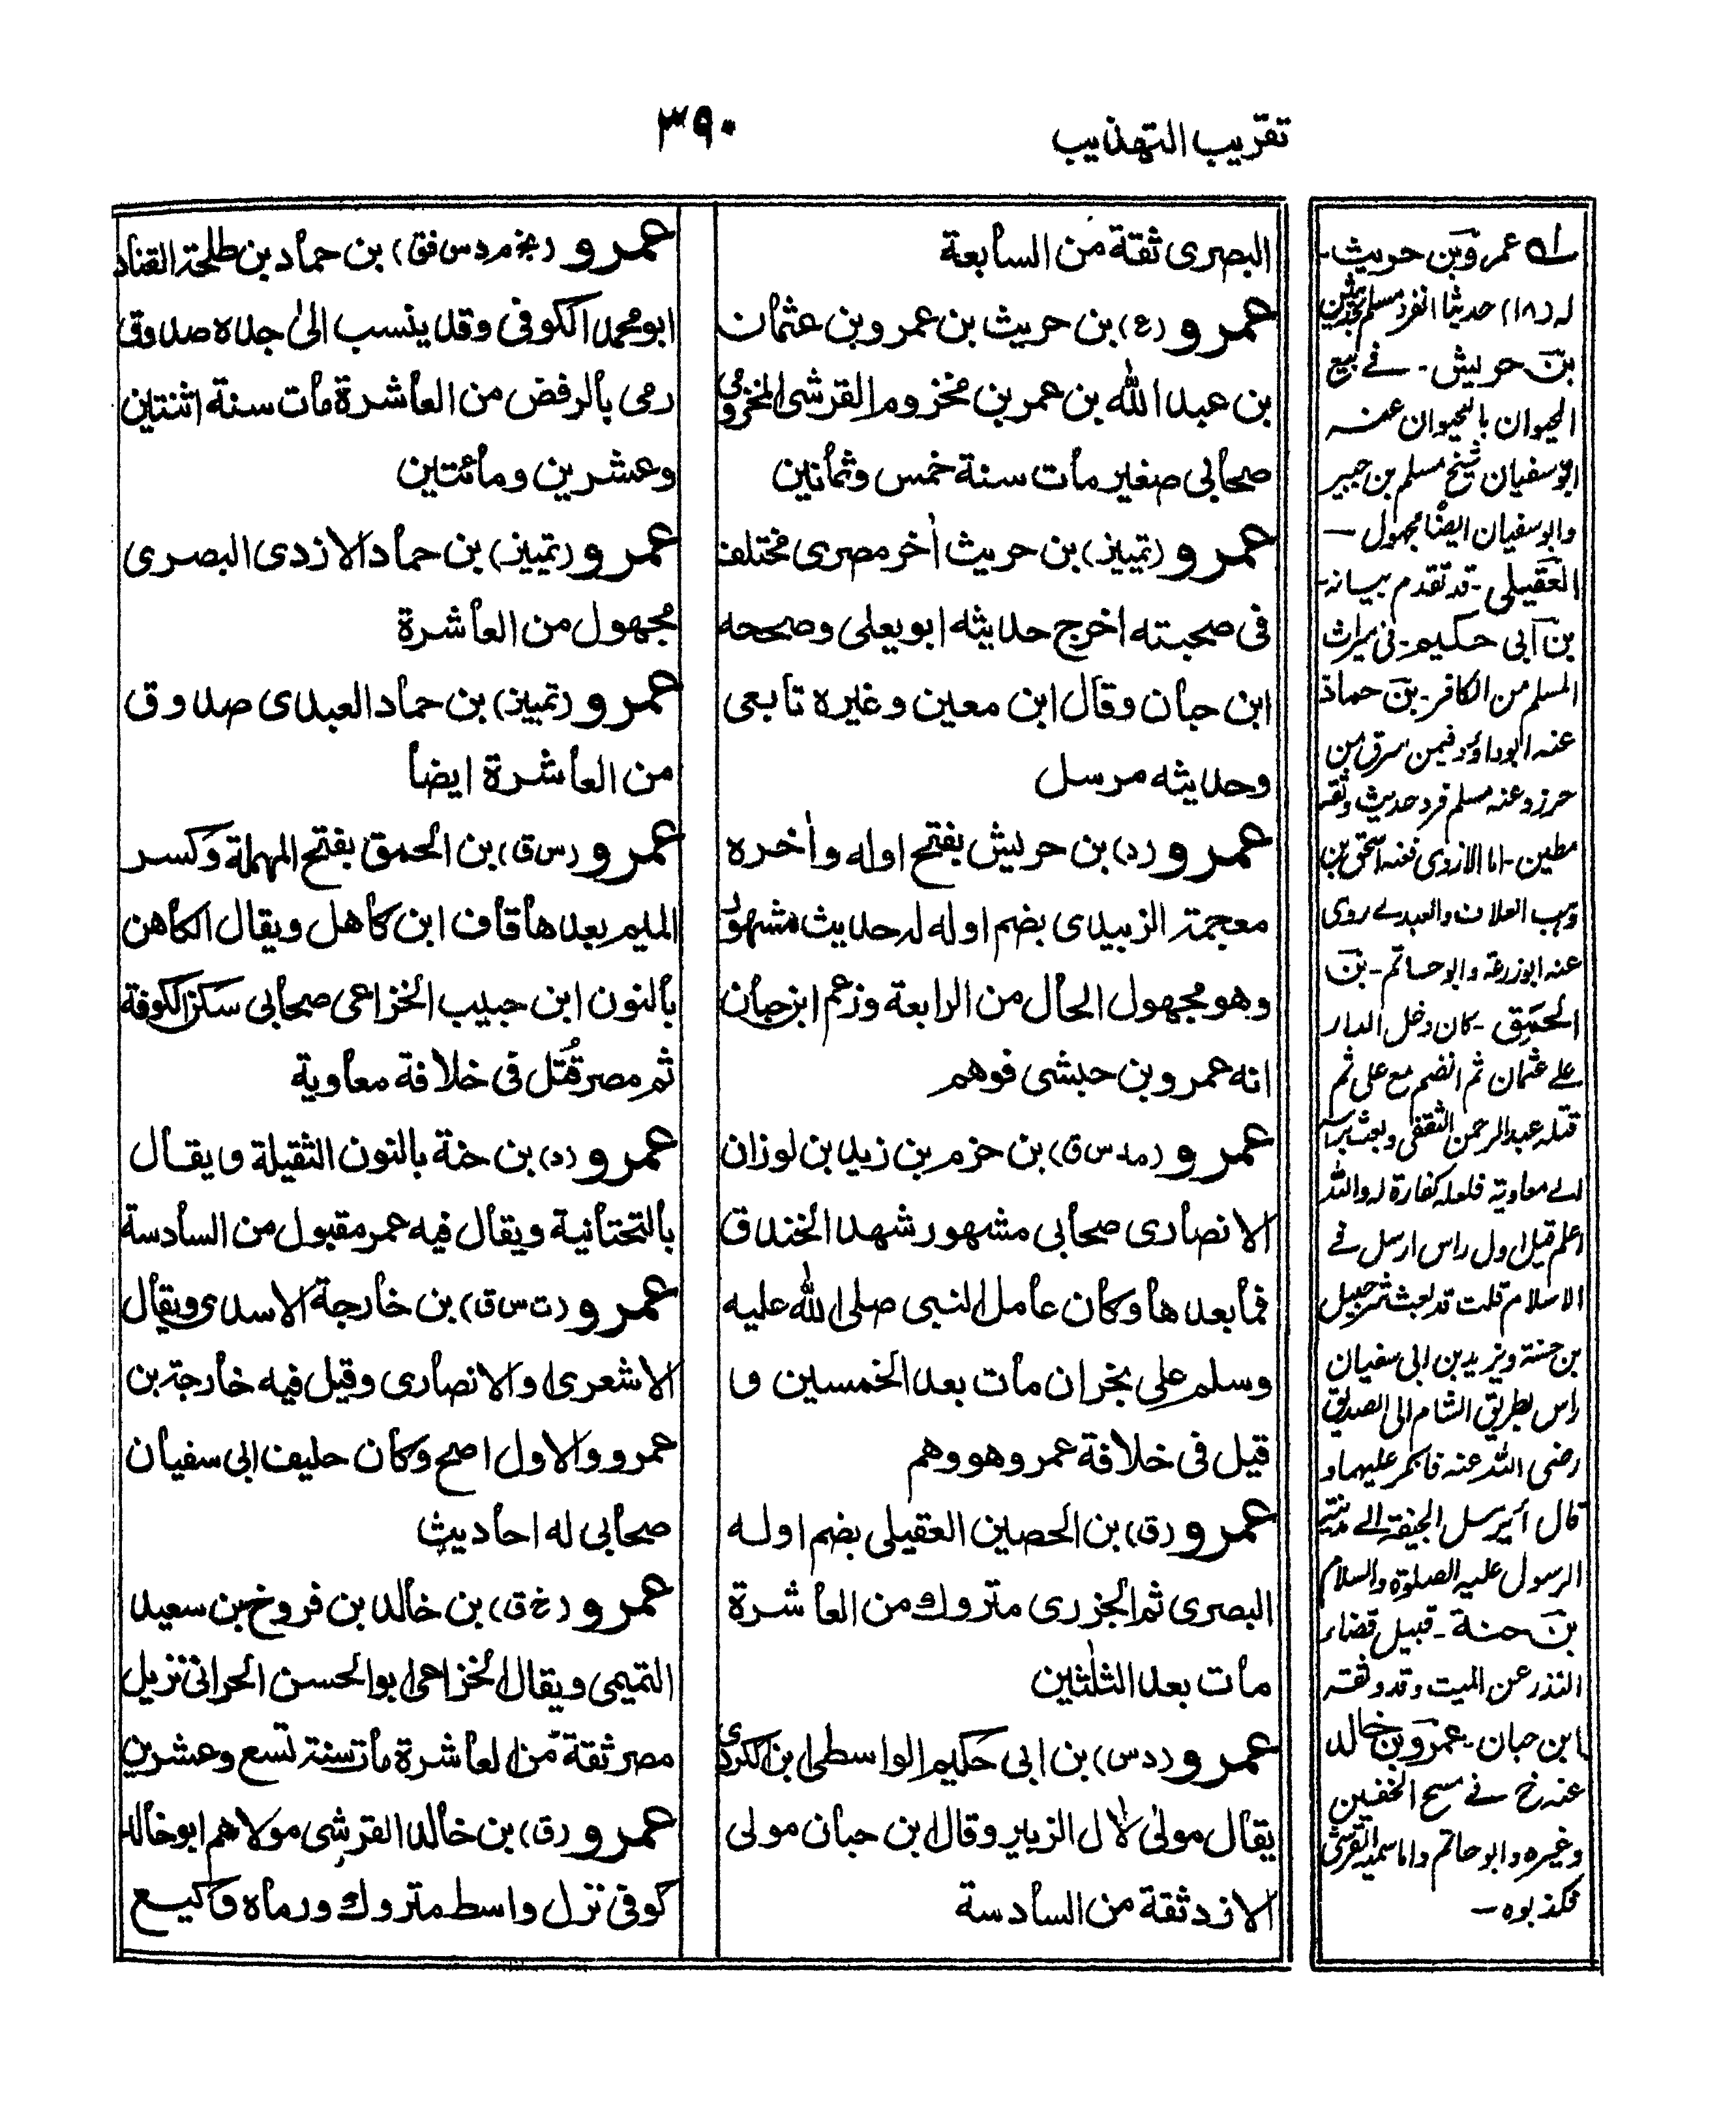 تقريب التهذيب
٣٩٠
البصرى ثقة من السابعة
عمرو (ع) بن حريث بن عمرو بن عثمان
بن عبد الله بن عمر بن مخزوم القرشى المخزومى
صحابى صغير مات سنة خمس وثمانين
عمرو (تمييز) بن حريث اٰخر مصرى مختلف
فى صحبته اخرج حديثه ابو يعلى وصححه
ابن حبان وقال ابن معين وغيره تابعى
وحديثه مرسل
عمرو (د) بن حريش بفتح اوله واٰخره
معجمة الزبيدى بضم اوله له حديث مشهور
وهو مجهول الحال من الرابعة وزعم ابن حبان
انه عمرو بن حبشى فوهم
عمرو (مد س ق) بن حزم بن زيد بن لوزان
الانصارى صحابى مشهور شهد الخندق
فما بعدها وكان عامل النبى صلى الله عليه
وسلم على نجران مات بعد الخمسين و
قيل فى خلافة عمر وهو وهم
عمرو (ق) بن الحصين العقيلى بضم اوله
البصرى ثم الجزرى متروك من العاشرة
مات بعد الثلٰثين
عمرو (د س) بن ابى حكيم الواسطى ابن الكردى
يقال مولىٰ لاٰل الزبير وقال ابن حبان مولى
الازد ثقة من السادسة
عمرو (بخ م د س فق) بن حماد بن طلحة القناد
ابو محمد الكوفى وقد ينسب الىٰ جده صدوق
رمى بالرفض من العاشرة مات سنة اثنتين
وعشرين ومائتين
عمرو (تمييز) بن حماد الازدى البصرى
مجهول من العاشرة
عمرو (تمييز) بن حماد العبدى صدوق
من العاشرة ايضا
عمرو (س ق) بن الحمق بفتح المهملة وكسر
الميم بعدها قاف ابن كاهل ويقال الكاهن
بالنون ابن حبيب الخزاعى صحابى سكن الكوفة
ثم مصر قُتل فى خلافة معاوية
عمرو (د) بن حنة بالنون الثقيلة ويقال
بالتحتانية ويقال فيه عمر مقبول من السادسة
عمرو (ت س ق) بن خارجة الاسدى ويقال
الاشعرى والانصارى وقيل فيه خارجة بن
عمرو والاول اصح وكان حليف ابى سفيان
صحابى له احاديث
عمرو (خ ق) بن خالد بن فروخ بن سعيد
التميمى ويقال الخزاعى ابو الحسن الحرانى نزيل
مصر ثقة من العاشرة مات سنة تسع وعشرين
عمرو (ق) بن خالد القرشى مولاهم ابو خالد
كوفى نزل واسط متروك ورماه وكيع
له عمرو بن حريث-
له (١٨) حديثا انفرد مسلم بحديثين
بن حريش - فے بيع
الحيوان بالحيوان عنه
ابو سفيان شيخ مسلم بن جبير
وابو سفيان ايضًا مجهول -
العقيلى - قد تقدم بيانه -
بن ابى حكيم - فى ميراث
المسلم من الكافر - بن حماد
عنه ابو داؤد فيمن سرق من
حرز وعنه مسلم فرد حديث وثقه
مطين - اما الازدى فعنه اسحٰق بن
وهب العلاف والعبدے روى
عنه ابو زرعة وابو حاتم - بن
الحمق - كان دخل الدار
علے عثمان ثم انضم مع على ثم
قتله عبد الرحمن الثقفى وبعث براسه
الے معاوية فلعله كفارة له والله
اعلم قيل اول راس ارسل فے
الاسلام قلت قد بعث شرحبيل
بن حسنة ويزيد بن ابى سفيان
راس بطريق الشام الى الصديق
رضى الله عنه فانكر عليهما و
قال أيرسل الجيفة الے مدينة
الرسول عليه الصلوة والسلام
بن حنة - قبيل قضاء
النذر عن الميت وقد وثقه
ابن حبان - عمرو بن خالد
عنه خ فے مسح الخفين
وغيره وابو حاتم واما سميه القرشى
فكذبوه -